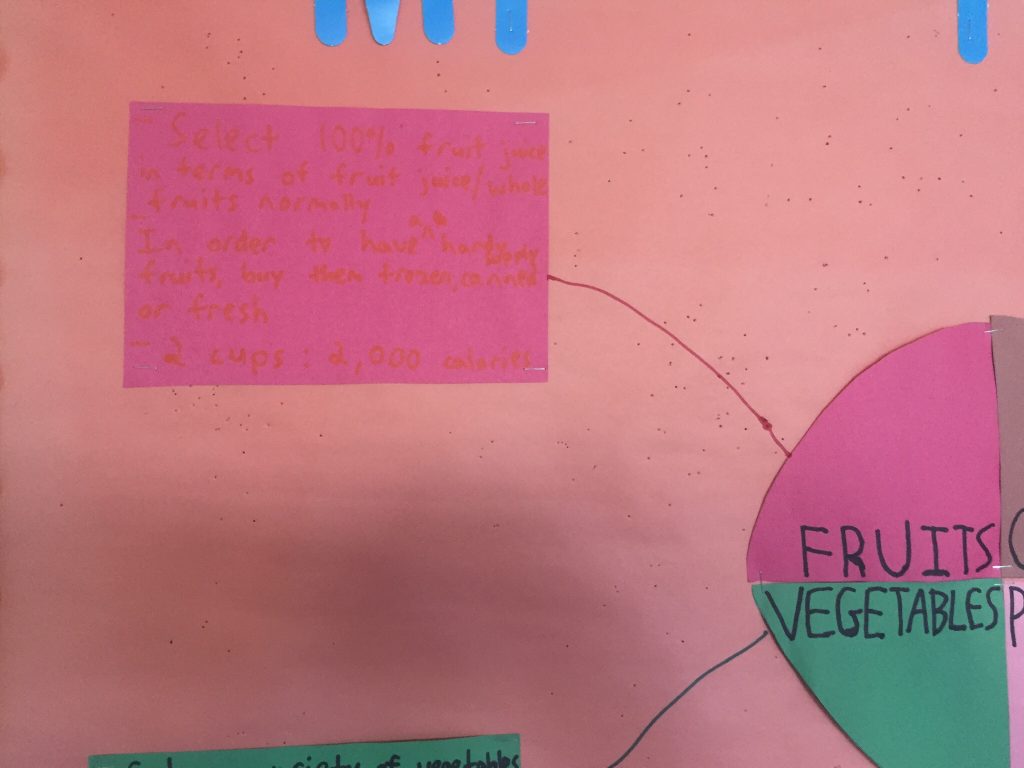 - Select 100% fruit juice
in terms of fruit juice/whole
fruits normally
- In order to have handy
fruits, buy them frozen, canned
or fresh
- 2 cups : 2,000 calories
FRUITS
VEGETABLES
variety of vegetables